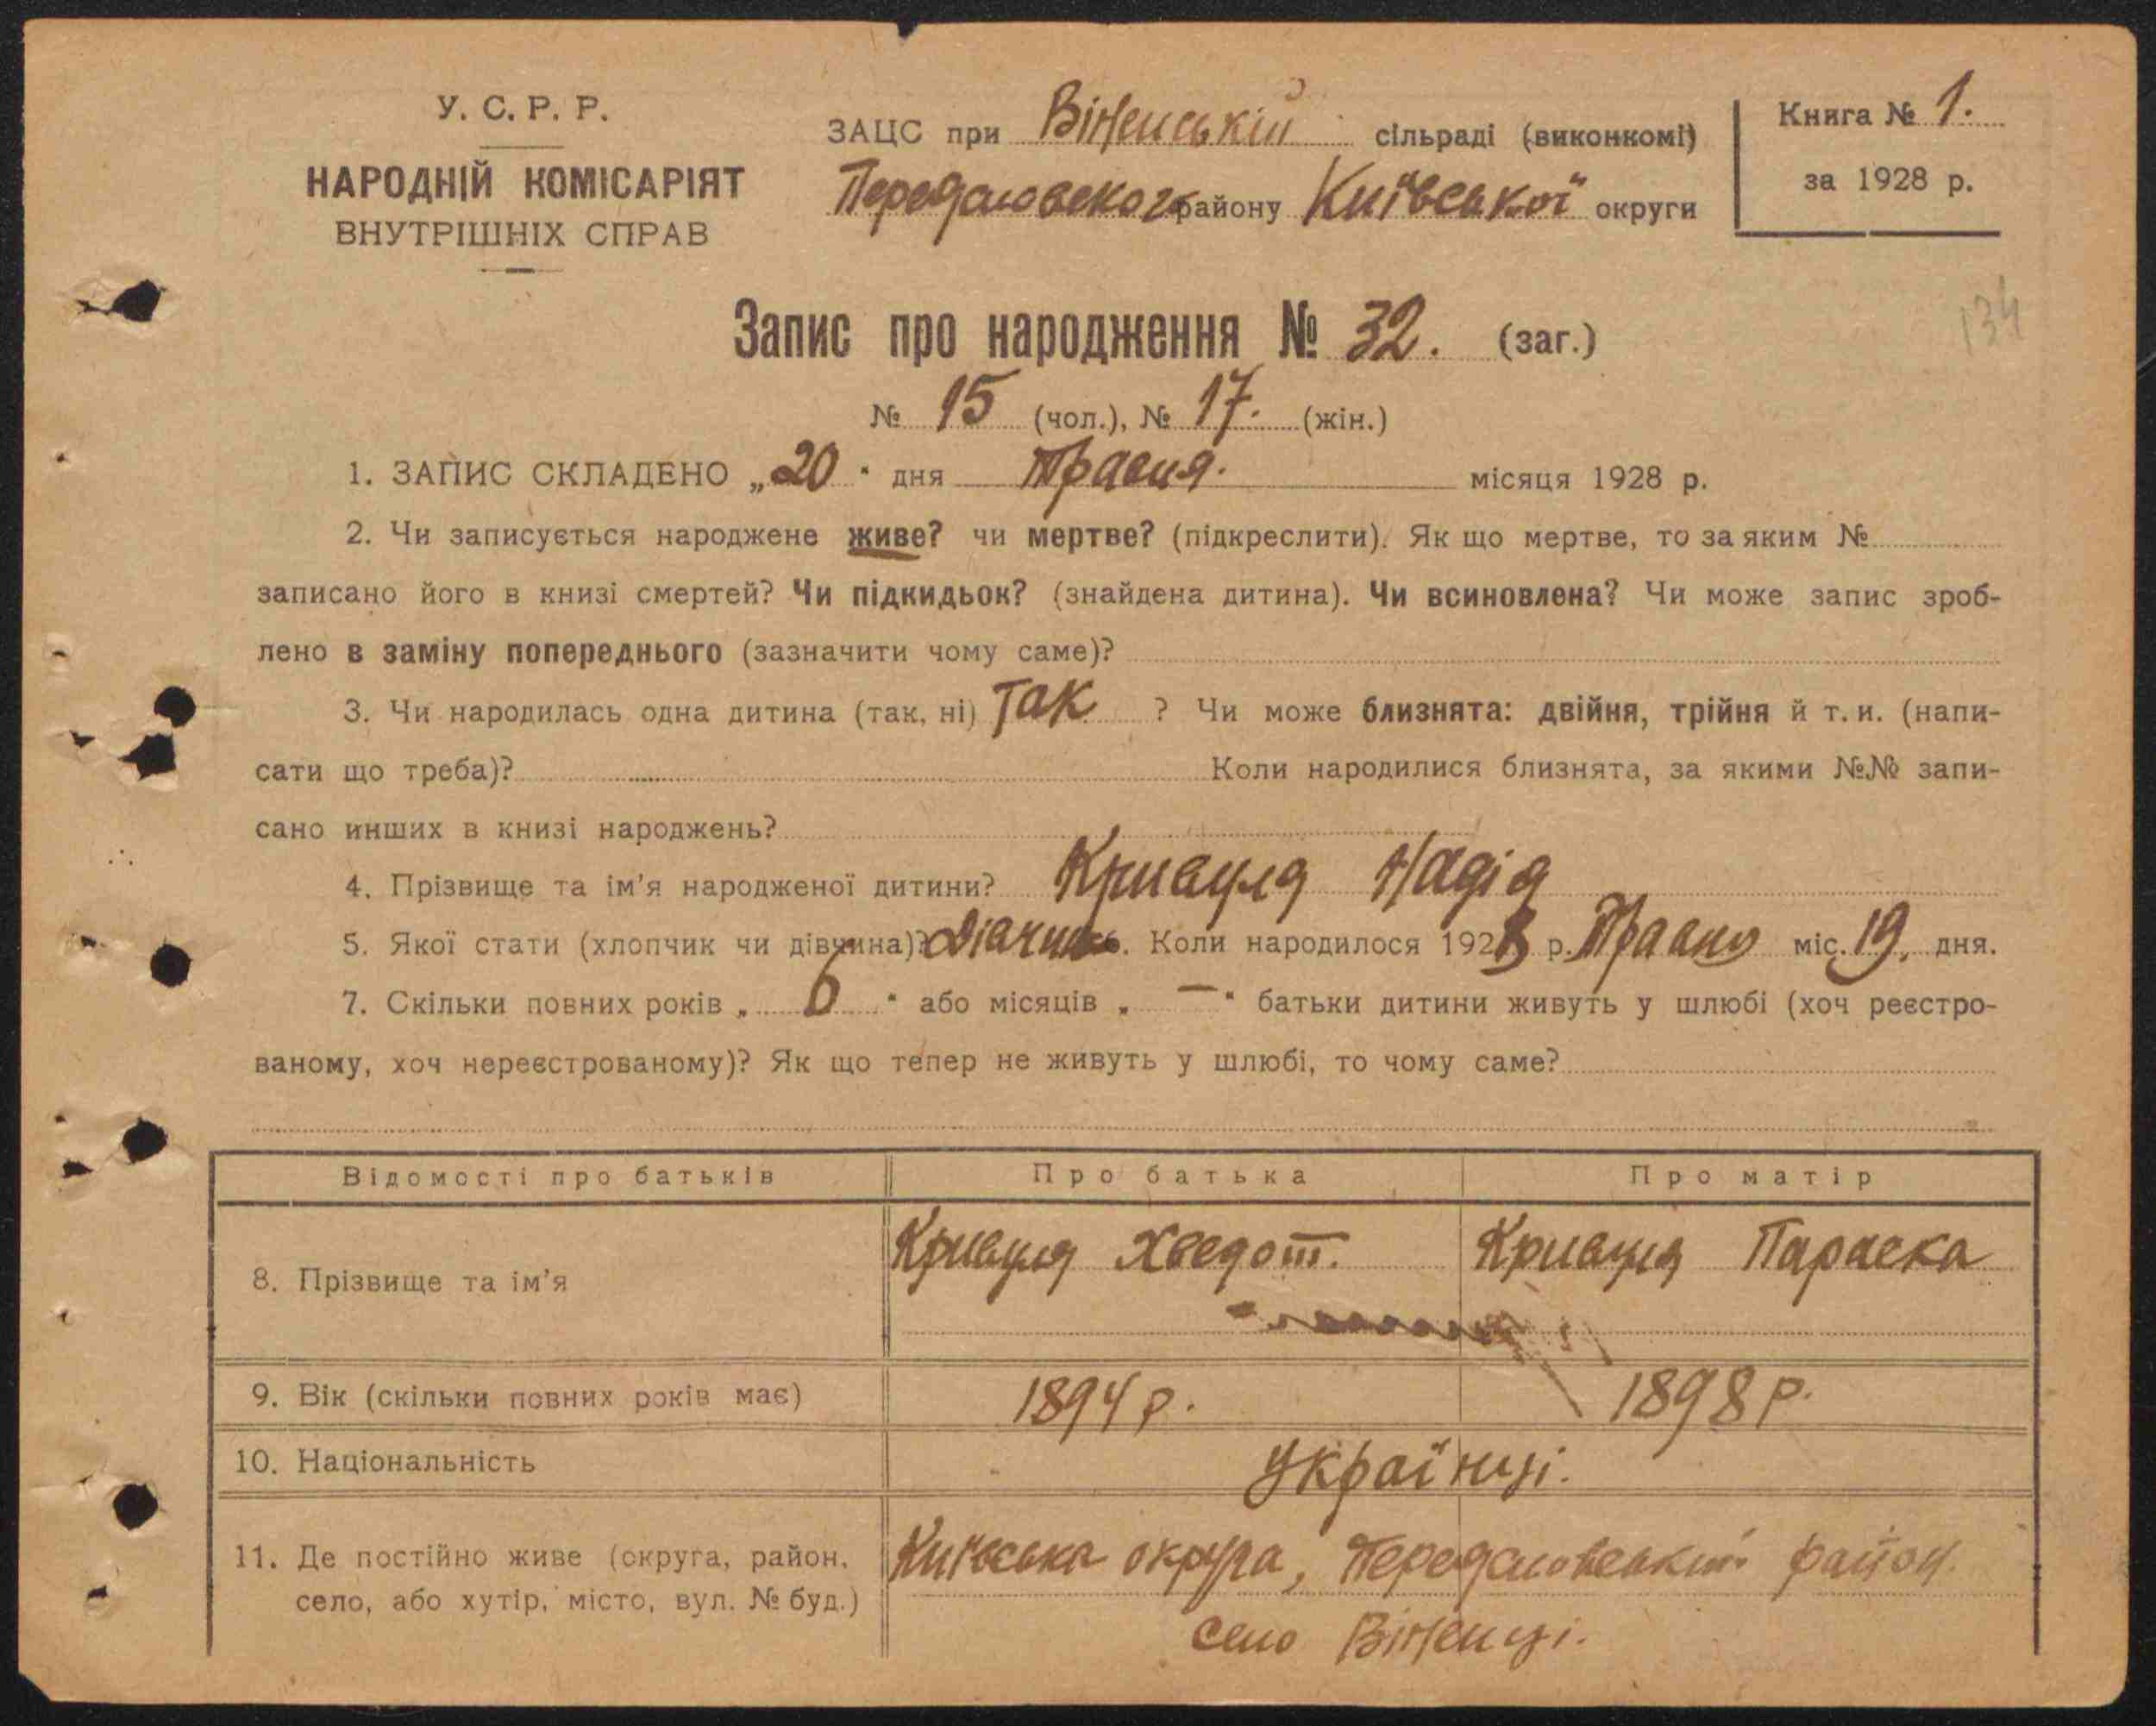 У. С. Р. Р.
НАРОДНІЙ КОМІСАРІЯТ
ВНУТРІШНІХ СПРАВ
ЗАЦС при Віненській сільраді (виконкомі)
району Київської округи
Книга № 1.
за 1928 р.
134
Запис про народження № 32. (заг.)
№ 15 (чол.), № 17. (жін.)
1. ЗАПИС СКЛАДЕНО „20" дня Травня. місяця 1928 р.
2. Чи записується народжене живе? чи мертве? (підкреслити). Як що мертве, то за яким №
записано його в книзі смертей? Чи підкидьок? (знайдена дитина). Чи всиновлена? Чи може запис зроб-
лено в заміну попереднього (зазначити чому саме)?
3. Чи народилась одна дитина (так, ні) Так ? Чи може близнята: двійня, трійня й т. и. (напи-
сати що треба)? Коли народилися близнята, за якими №№ запи-
сано инших в книзі народжень?
4. Прізвище та ім'я народженої дитини? Кривуля Надія
5. Якої стати (хлопчик чи дівчина)? Коли народилося 1928 р. міс. 19. дня.
7. Скільки повних років „ 6 " або місяців „ — " батьки дитини живуть у шлюбі (хоч реєстро-
ваному, хоч нереєстрованому)? Як що тепер не живуть у шлюбі, то чому саме?
Відомості про батьків Про батька Про матір
8. Прізвище та ім'я Кривуля Хведот. Кривуля Параска
9. Вік (скільки повних років має) 1894 р. 1898 р.
10. Національність Українці.
11. Де постійно живе (округа, район, Київська округа, район.
село, або хутір, місто, вул. № буд.) село Віненці.